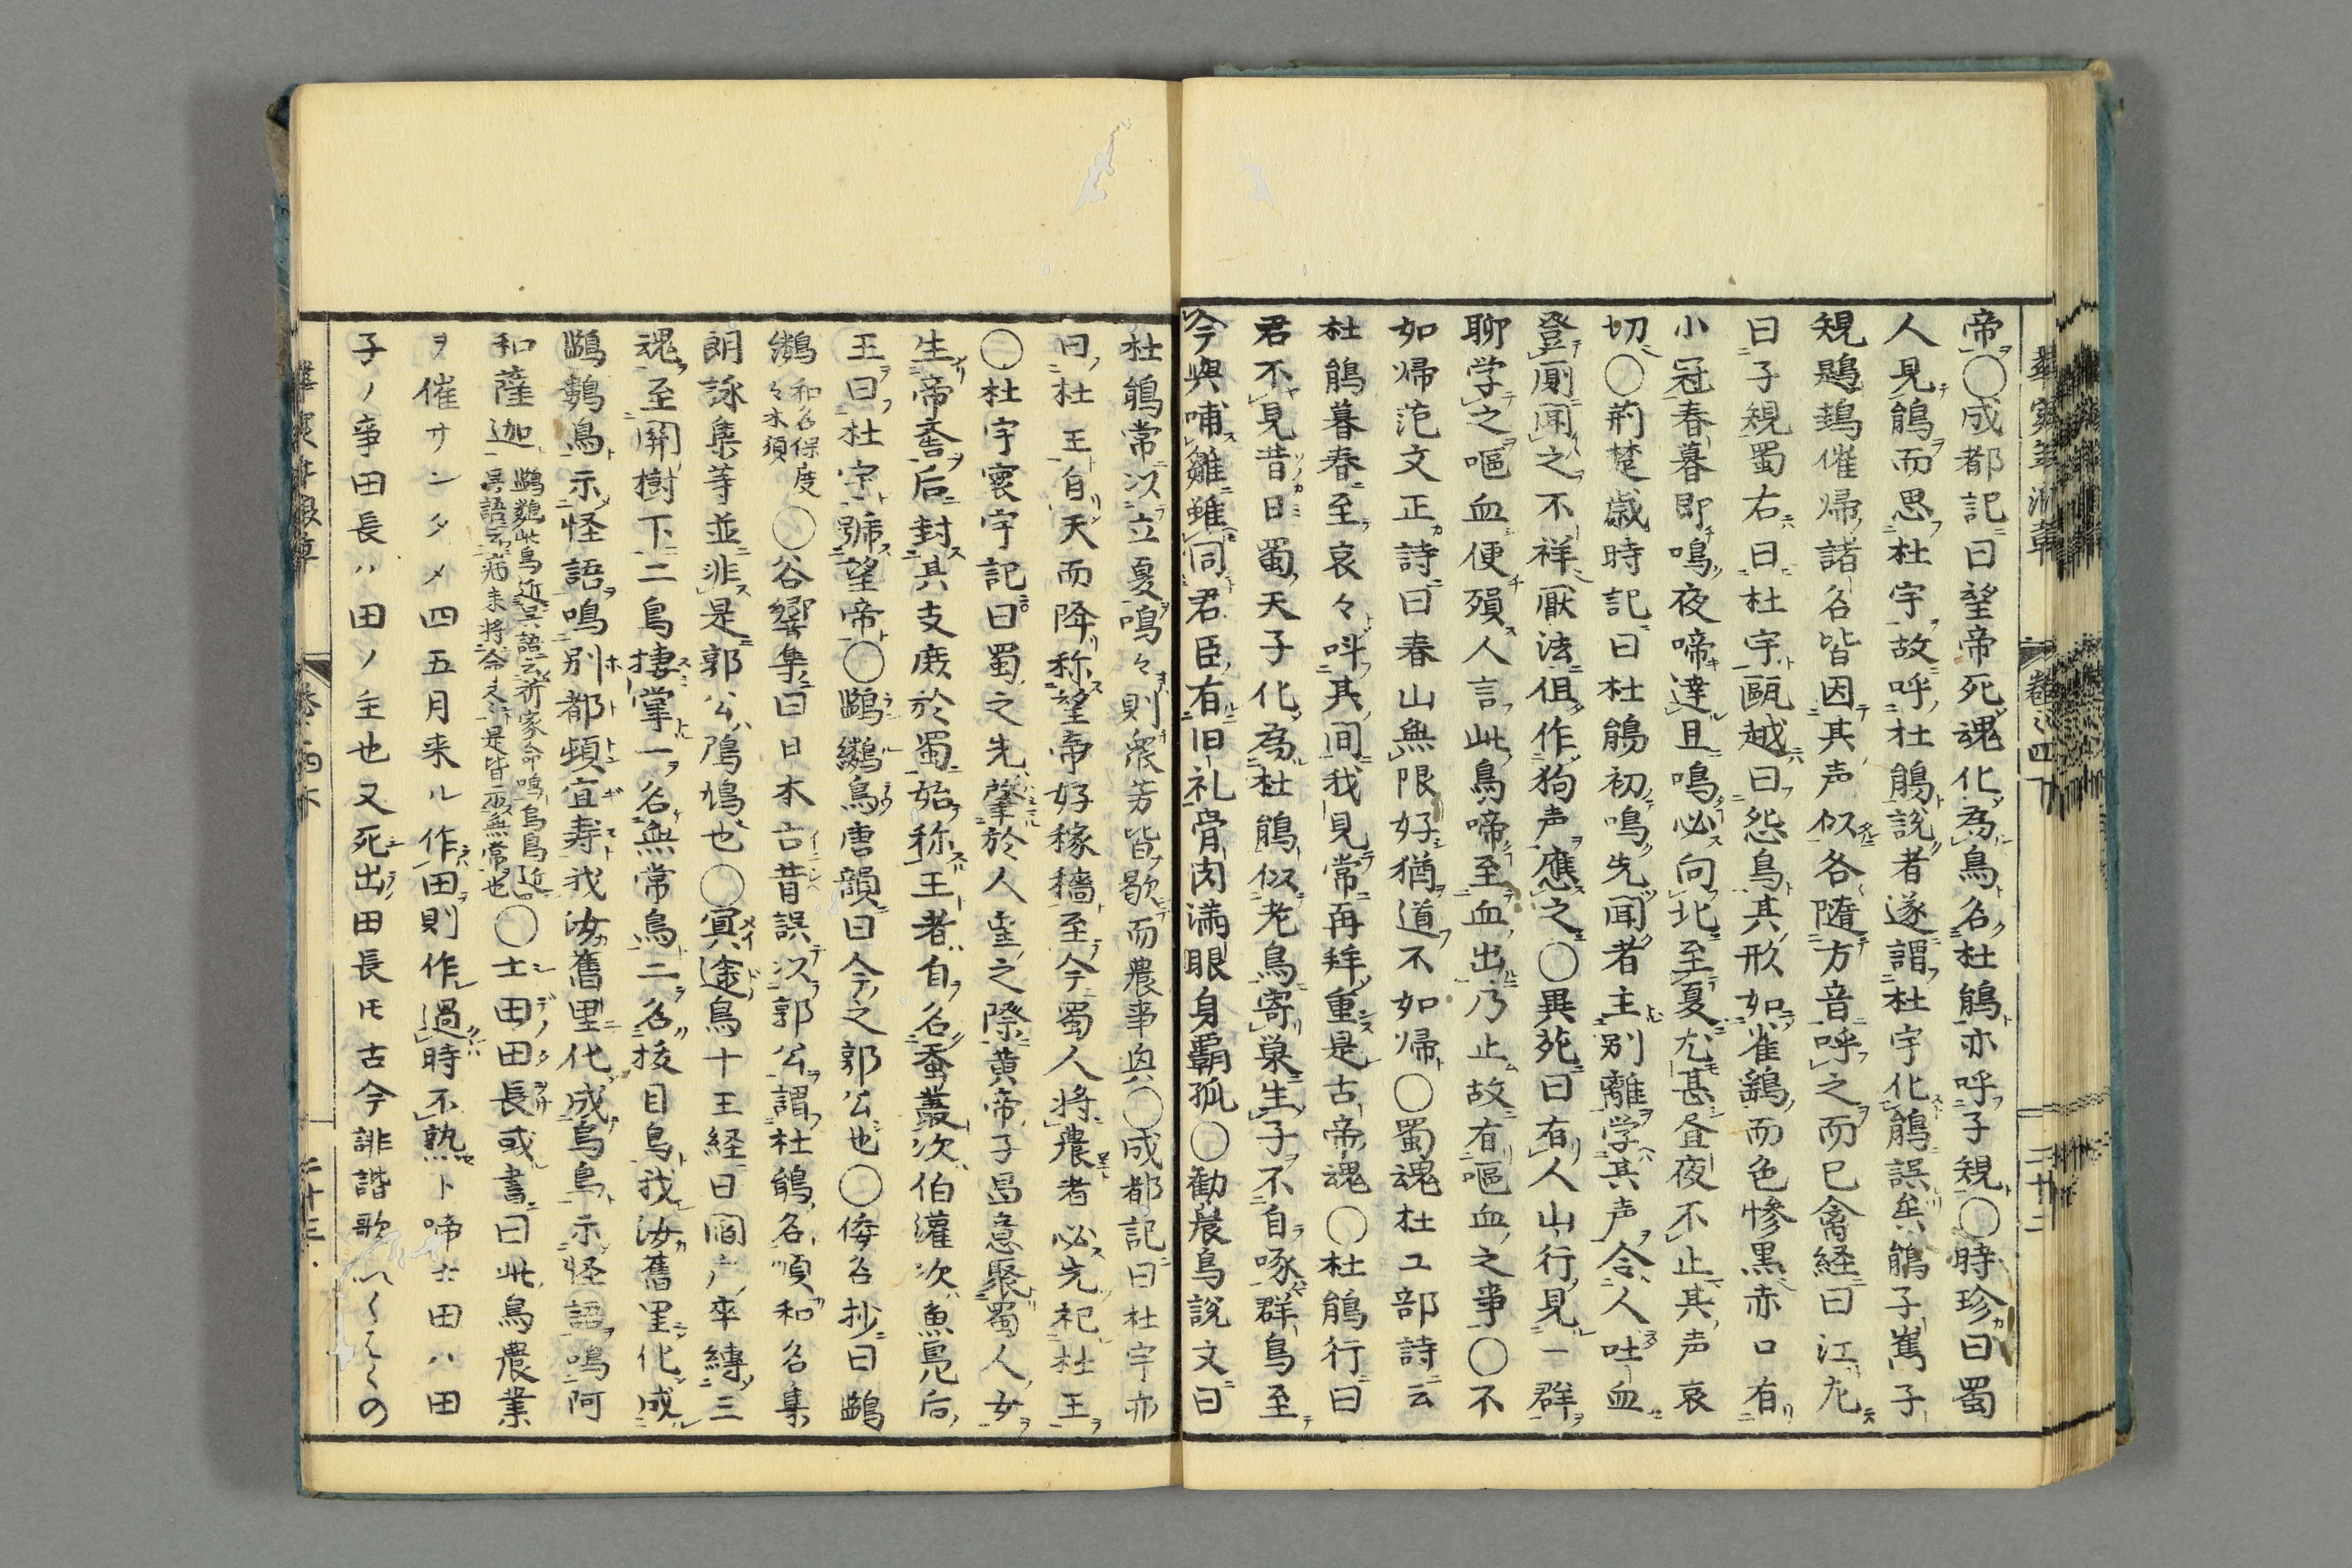 帝○成都記曰望帝死魂化為鳥名杜鵑亦呼子規○時珍曰蜀
人見鵑而思杜宇故呼杜鵑説者遂謂杜宇化鵑誤矣鵑子嶲子
規鶗鴂催帰諸名皆因其声似各隨方音呼之而已禽経曰江左
曰子規蜀右曰杜宇甌越曰怨鳥其形如雀鷂而色惨黒赤口有
小冠春暮即鳴夜啼達旦鳴必向北至夏尤甚昼夜不止其声哀
切○荊楚歳時記曰杜鵑初鳴先聞者主別離学其声令人吐血
登厠聞之不祥厭法但作狗声應之○異苑曰有人山行見一群
聊学之嘔血便殞人言此鳥啼至血出乃止故有嘔血之事○不
如帰范文正詩曰春山無限好猶道不如帰○蜀魂杜工部詩云
杜鵑暮春至哀々呌其間我見常再拜重是古帝魂○杜鵑行曰
君不見昔日蜀天子化為杜鵑似老鳥寄巣生子不自啄群鳥至
今與哺雛雖同君臣有旧礼骨肉満眼身羈孤○勧農鳥説文曰
杜鵑常以立夏鳴々則衆芳皆歇而農事興○成都記曰杜宇亦
曰杜王自天而降称望帝好稼穡至今蜀人將農者必先祀杜王
○杜宇寰宇記曰蜀之先肇於人皇之際黄帝子昌意娶蜀人女
生帝嚳后封其支庶於蜀始称王者自名蚕叢次伯灌次魚鳧后
王曰杜宇號望帝○鷓鷀鳥唐韻曰今之郭公也○倭名抄曰鷓
鷀和名保度々木須○谷響集曰日本古昔誤以郭公謂杜鵑名順和名集
朗詠集等並非是郭公鳲鳩也○冥途鳥十王経曰閻广卒縛三
魂至関樹下二鳥掌一名無常鳥二名抜目鳥我汝舊里化成
鷓鷀鳥示怪語鳴別都頓宜寿我汝舊里化成烏鳥示怪語鳴阿
和薩迦○士田田長或書曰此鳥農業
ヲ催サンタメ四五月来ル作田則作過時不熟ト啼士田ハ田
子ノ事田長ハ田ノ主也又死出田長氏古今誹諧歌いくはくの
巻之四下
二十二
二十三